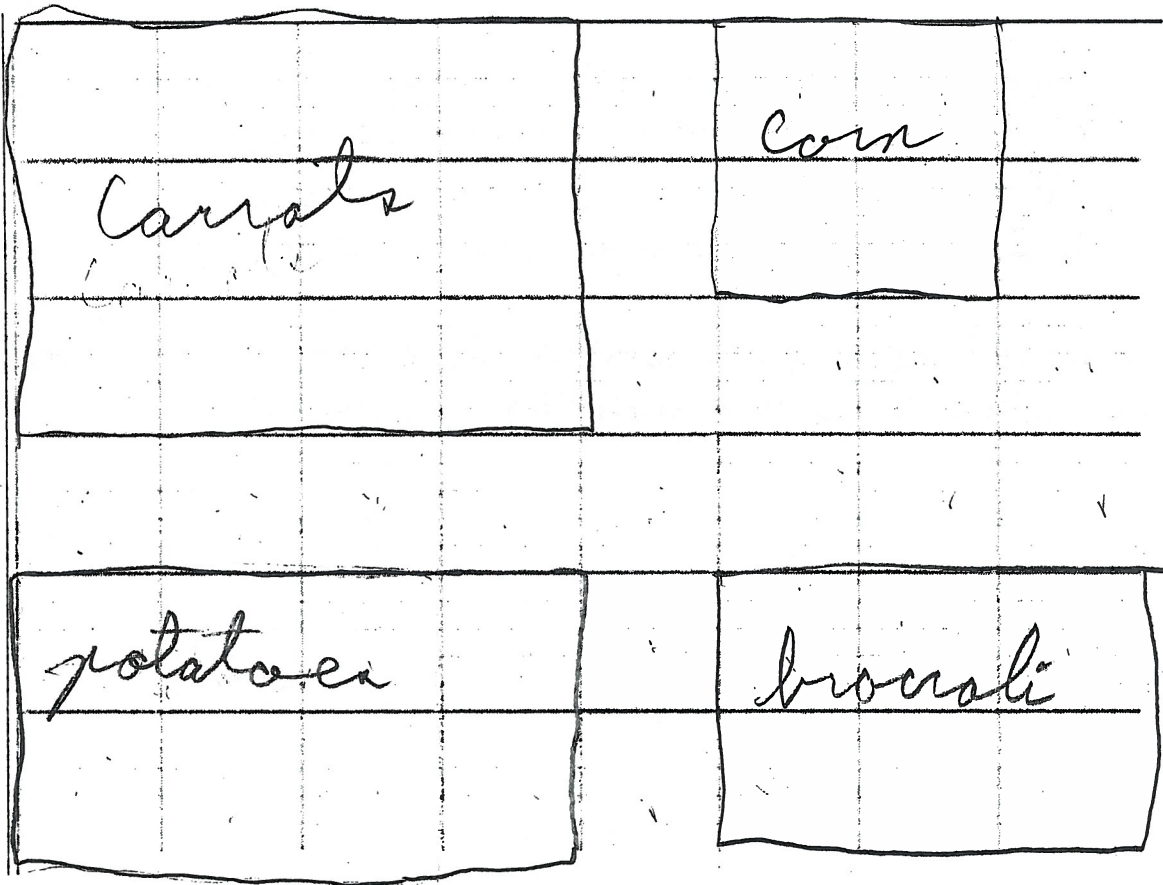 Carrots
corn
potatoes
broccoli